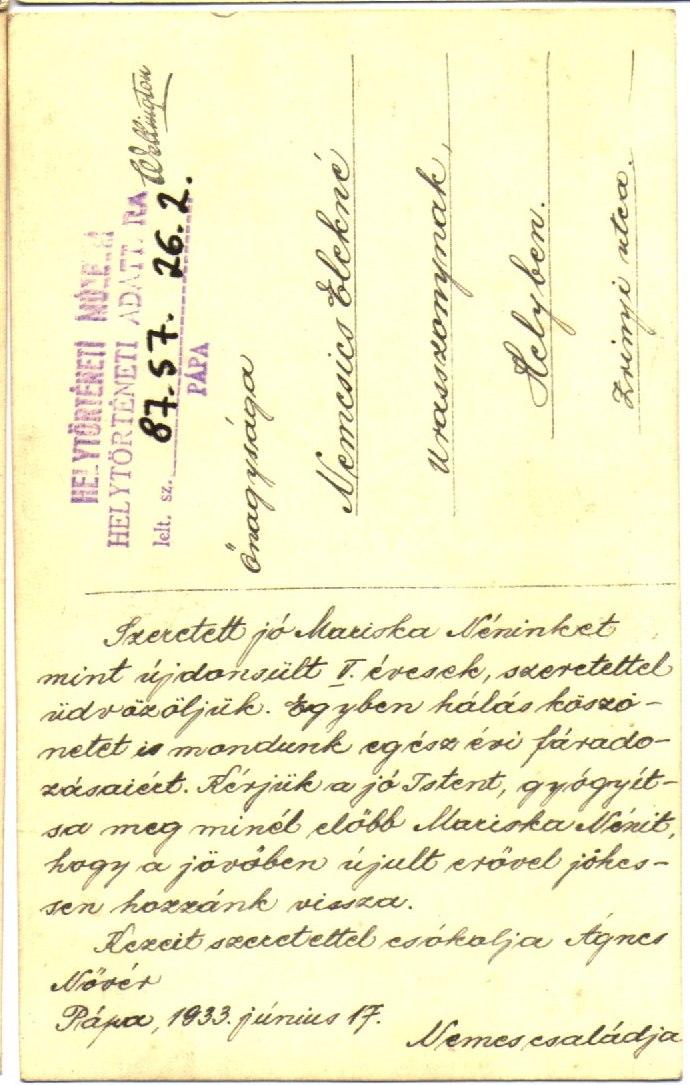 HELYTÖRTÉNETI MÚZEUM
HELYTÖRTÉNETI ADATT. RA Wellington
lelt. sz. 87.57. 26.2.
PÁPA
Őnagysága
Nemcsics Elekné
Urasszonynak,
Helyben.
Zrinyi utca.
Szeretett jó Mariska Néninket
mint újdonsült V. évesek, szeretettel
üdvözöljük. Egyben hálás köszö-
netet is mondunk egész évi fárado-
zásaiért. Kérjük a jó Istent, gyógyít-
sa meg minél előbb Mariska Nénit,
hogy a jövőben újult erővel jöhes-
sen hozzánk vissza.
Kezeit szeretettel csókolja Ágnes
Nővér
Pápa, 1933. június 17.
Nemes családja